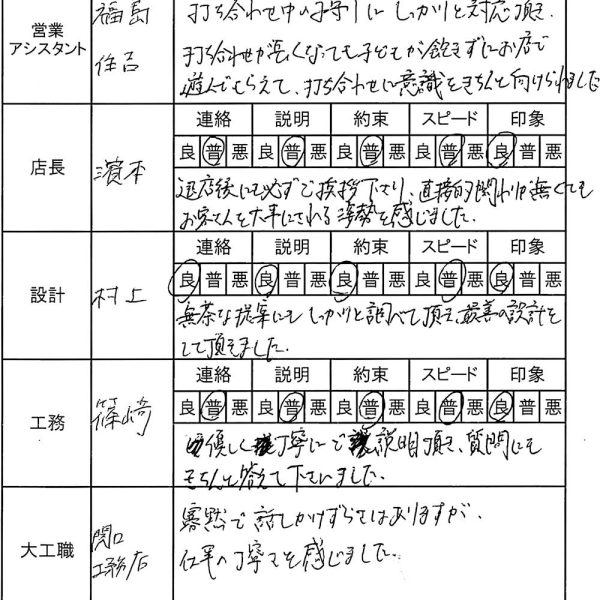 営業
アシスタント
福島
住吉
打ち合わせ中の子守りにしっかりと対応頂き、
打ち合わせが長くなっても子どもが飽きずにお店で
遊んでもらえて、打ち合わせに意識をきちんと向けられました
店長
濵本
連絡 説明 約束 スピード 印象
良 普 悪 良 普 悪 良 普 悪 良 普 悪 良 普 悪
退店後にも必ずご挨拶下さり、直接的関わりが無くても
お客さんを大事にされる姿勢を感じました。
設計
村上
連絡 説明 約束 スピード 印象
良 普 悪 良 普 悪 良 普 悪 良 普 悪 良 普 悪
無茶な提案にもしっかりと調べて頂き、最善の設計を
して頂きました。
工務
篠﨑
連絡 説明 約束 スピード 印象
良 普 悪 良 普 悪 良 普 悪 良 普 悪 良 普 悪
優しく丁寧にご説明頂き、質問にも
きちんと答えて下さいました。
大工職
関口
工務店
寡黙で話しかけずらくはありますが、
仕事の丁寧さを感じました。